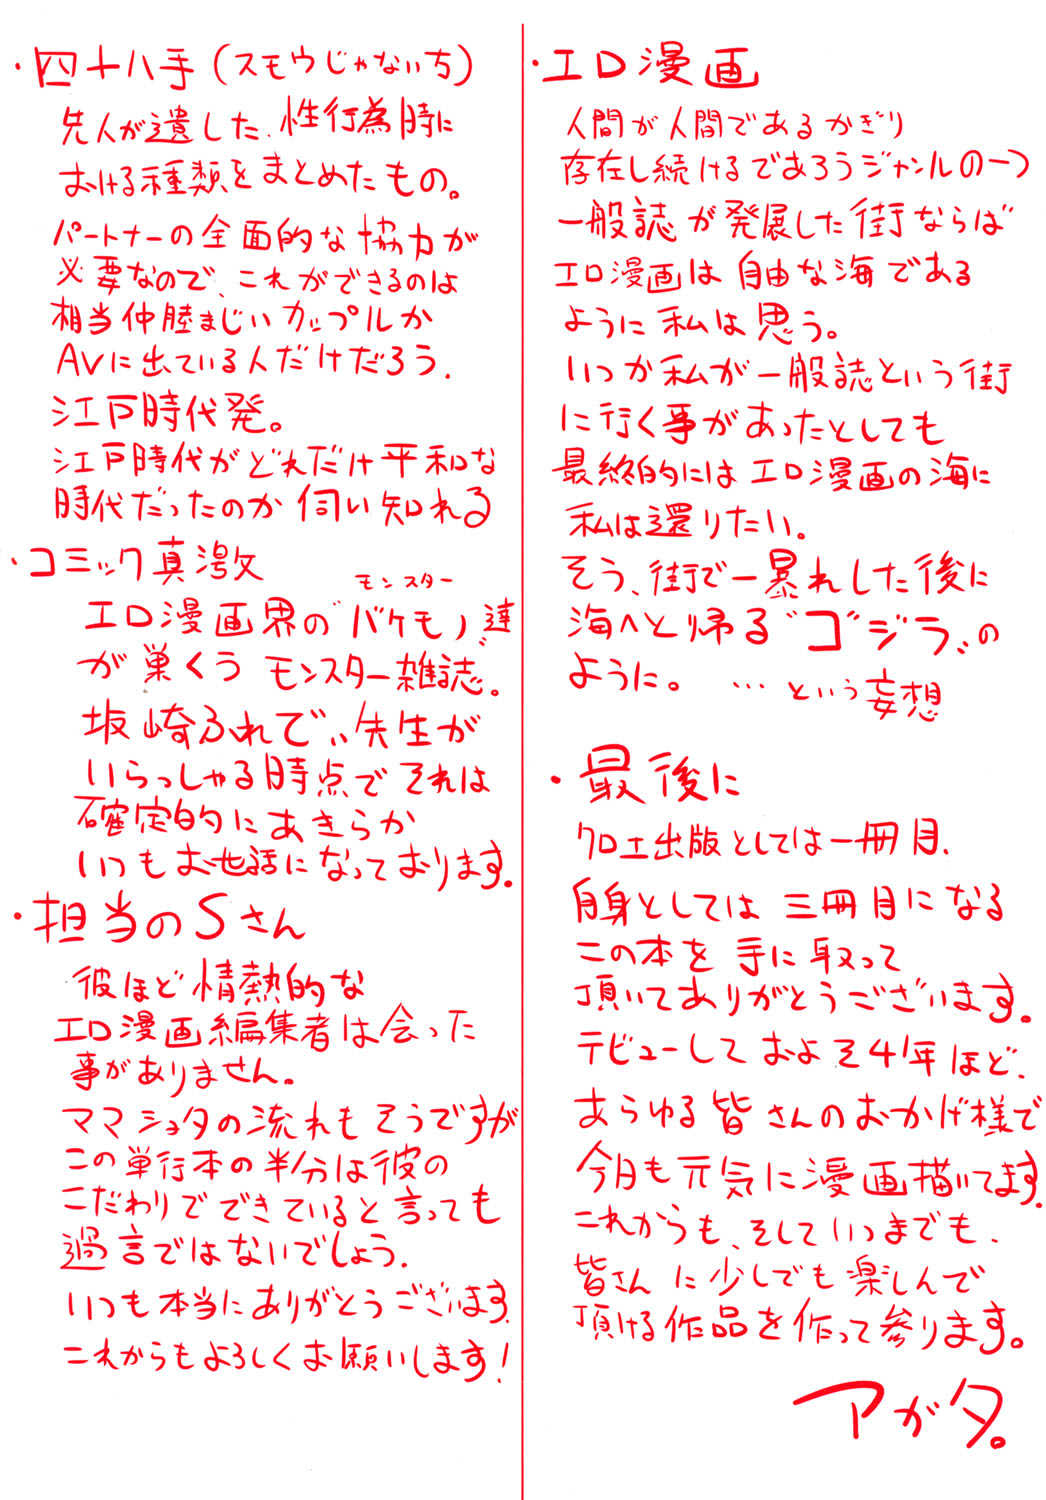 ・四十八手(スモウじゃない方)
先人が遺した、性行為時に
おける種類をまとめたもの。
パートナーの全面的な協力が
必要なので、これができるのは
相当仲睦まじいカップルか
AVに出ている人だけだろう.
江戸時代発。
江戸時代がどれだけ平和な
時代だったのか伺い知れる
・コミック真激
モンスター
エロ漫画界の"バケモノ"達
が巣くうモンスター雑誌。
坂崎ふれでぃ先生が
いらっしゃる時点でそれは
確定的にあきらか
いつもお世話になっております.
・担当のSさん
彼ほど情熱的な
エロ漫画編集者は会った
事がありません。
ママショタの流れもそうですが
この単行本の半分は彼の
こだわりでできていると言っても
過言ではないでしょう.
いつも本当にありがとうございます.
これからもよろしくお願いします!
・エロ漫画
人間が人間であるかぎり
存在し続けるであろうジャンルの一つ
一般誌が発展した街ならば
エロ漫画は自由な海である
ように私は思う。
いつか私が一般誌という街
に行く事があったとしても
最終的にはエロ漫画の海に
私は還りたい。
そう、街で一暴れした後に
海へと帰る"ゴジラ"の
ように。 …という妄想
・最後に
クロエ出版としては一冊目、
自身としては三冊目になる
この本を手に取って
頂いてありがとうございます。
デビューしておよそ4年ほど、
あらゆる皆さんのおかげ様で
今月も元気に漫画描いてます.
これからも、そしていつまでも、
皆さんに少しでも楽しんで
頂ける作品を作って参ります。
アガタ。